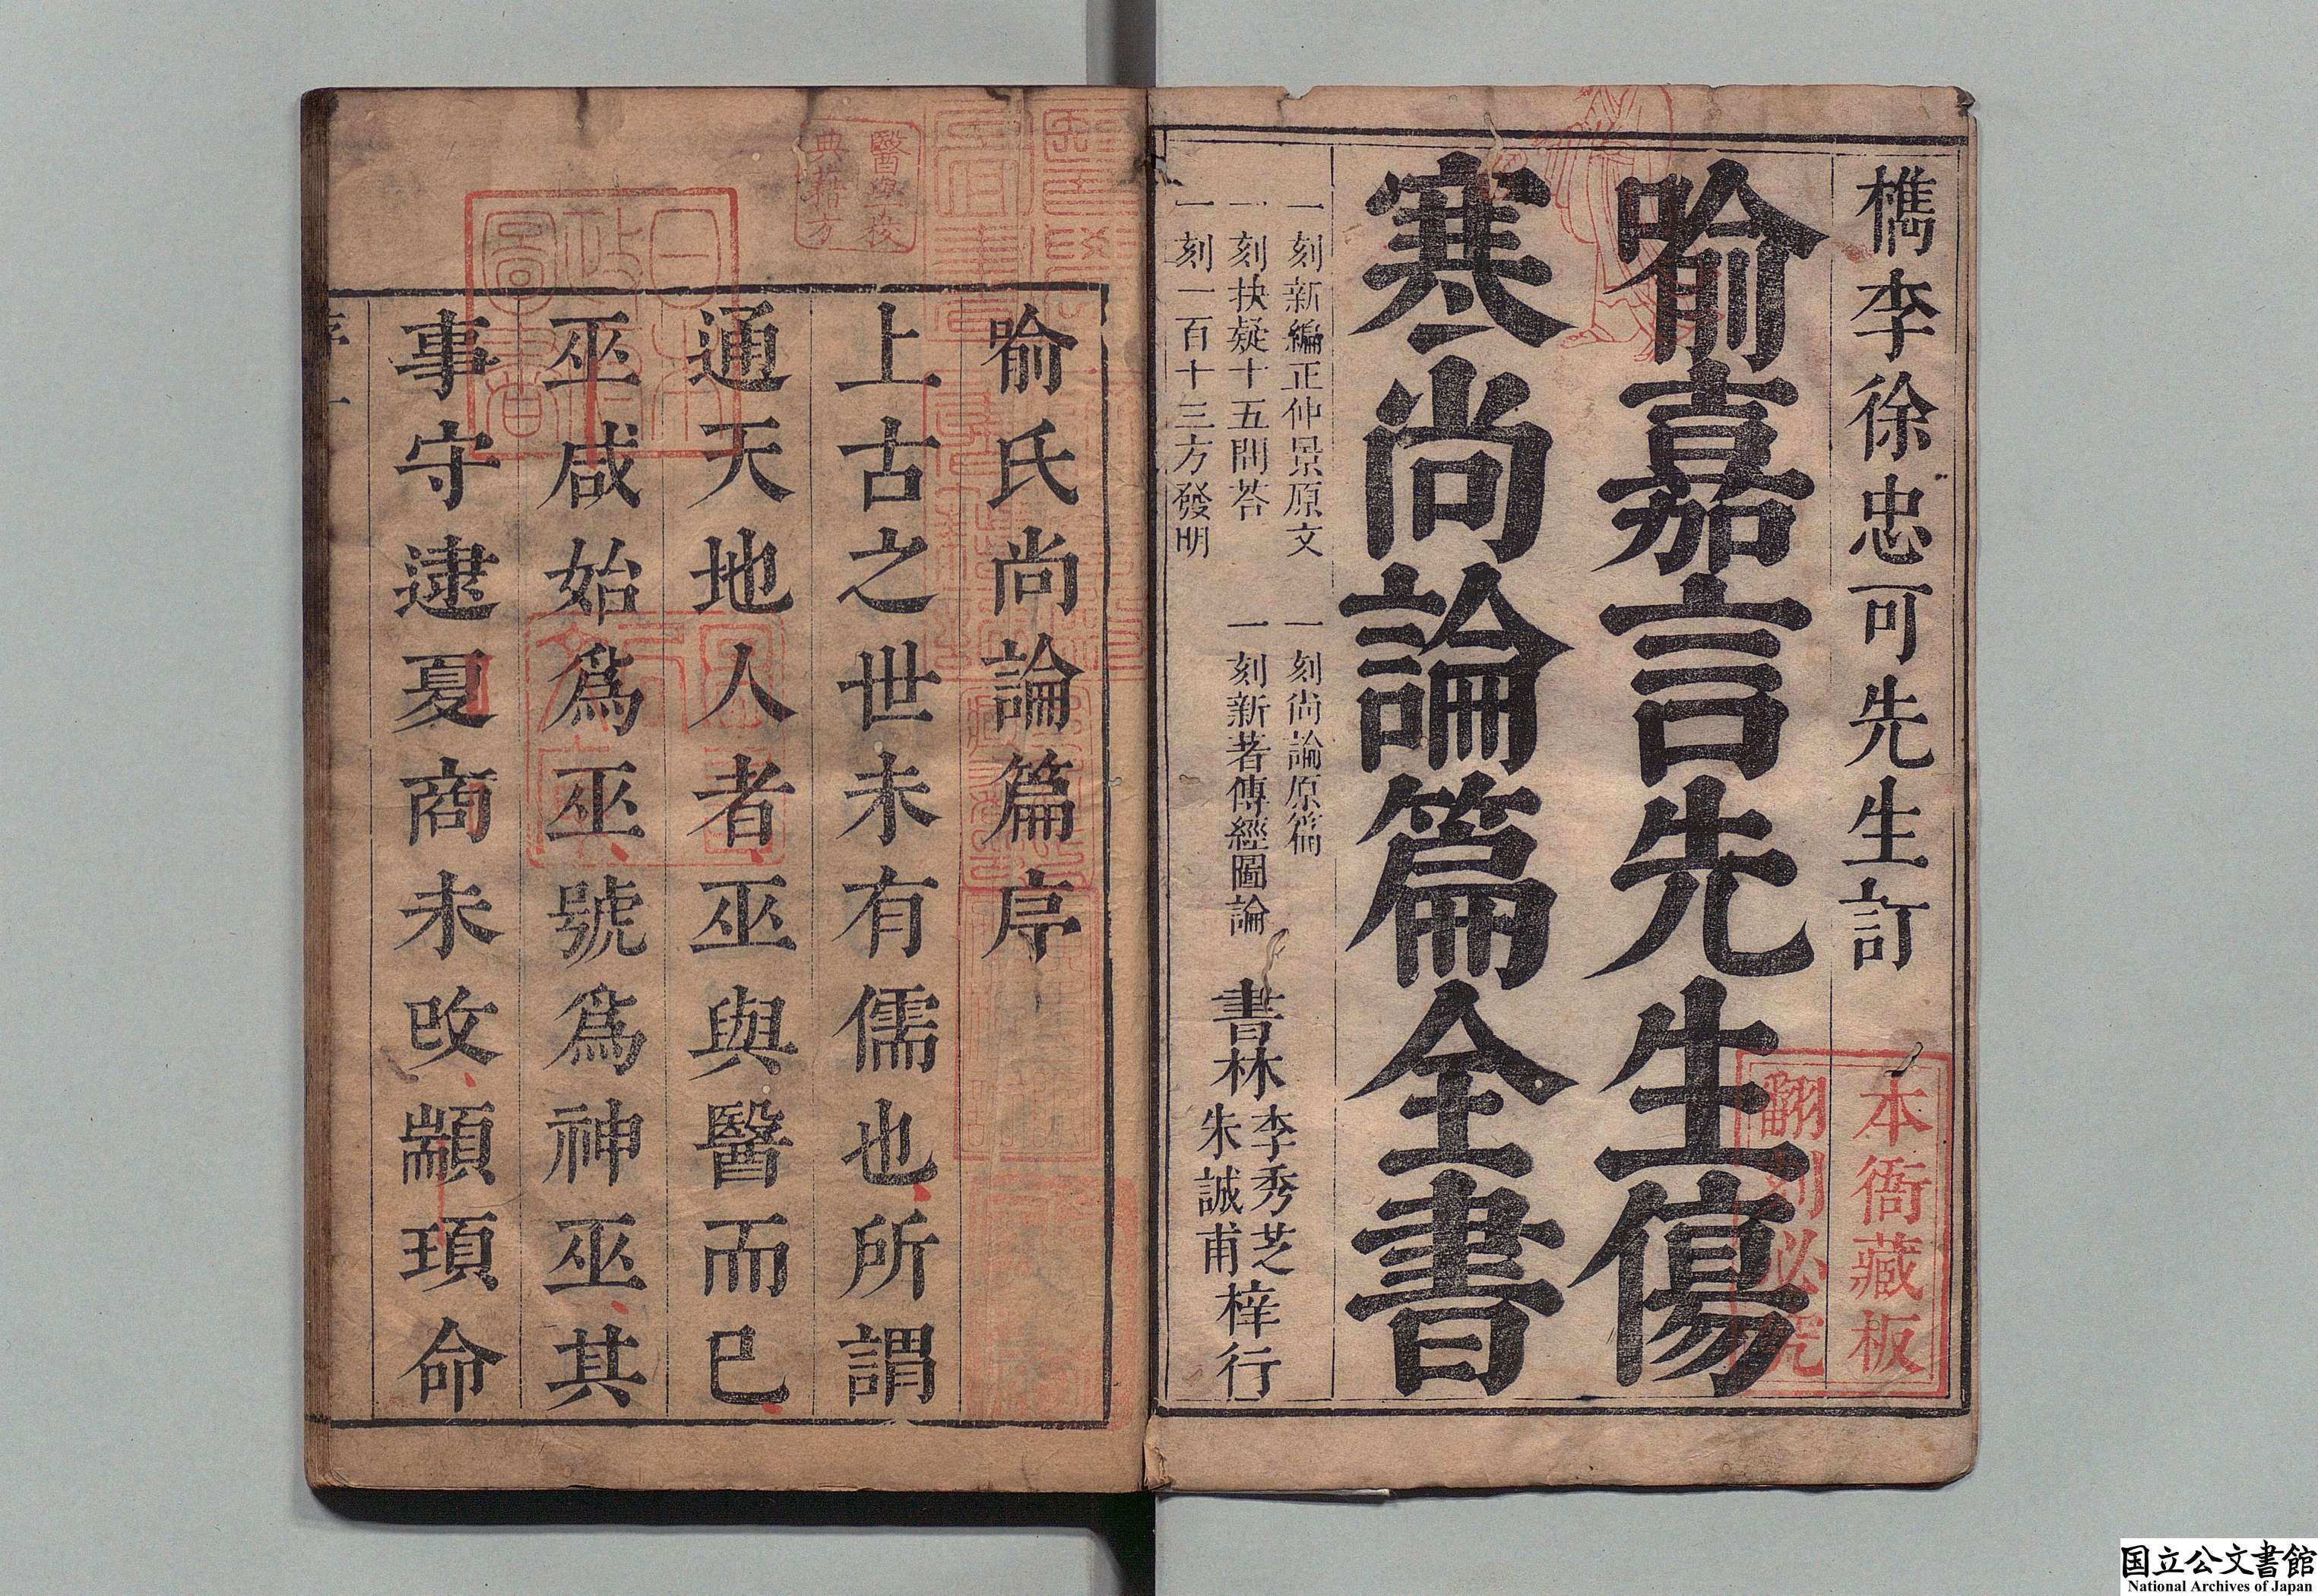 檇李徐忠可先生訂
喻嘉言先生傷
寒尚論篇全書
一刻新編正仲景原文
一刻抉疑十五問荅
一刻一百十三方發明
一刻尚論原篇
一刻新著傳經圖論
書林
李秀芝
朱誠甫
梓行
本衙藏板
翻刻必究
喻氏尚論篇序
上古之世未有儒也所謂
通天地人者巫與醫而已
巫咸始爲巫號爲神巫其
事守逮夏商未改顓頊命
醫學校
典籍方
日本
政府
圖書
国立公文書館
National Archives of Japan